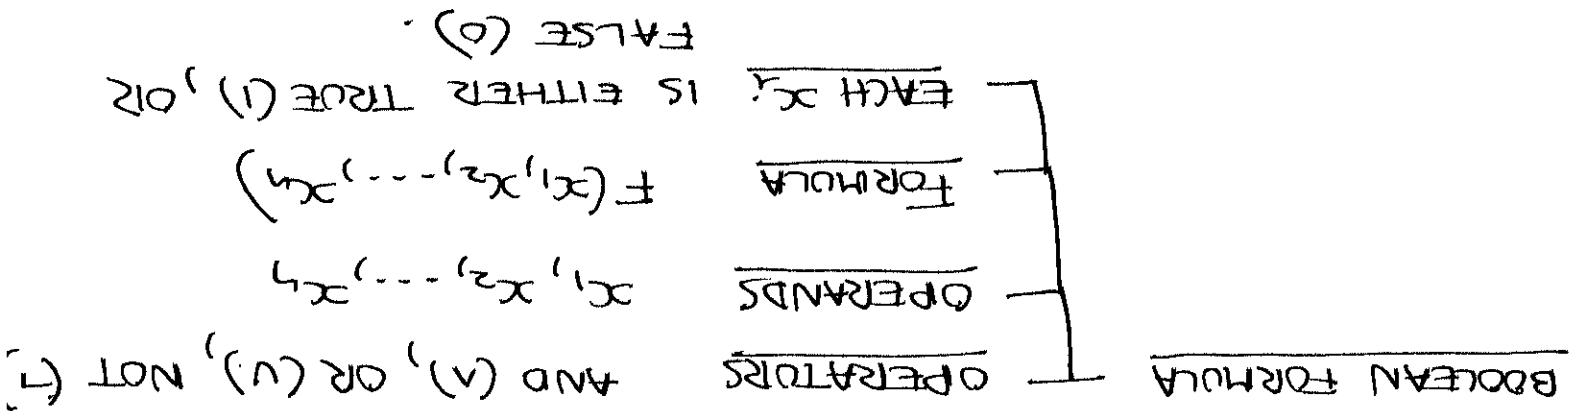 BOOLEAN FORMULA OPERATORS AND (∧), OR (∨), NOT (¬)
OPERANDS x₁, x₂, ---, xₙ
FORMULA F(x₁, x₂, ---, xₙ)
EACH xᵢ IS EITHER TRUE (1), OR
FALSE (0).